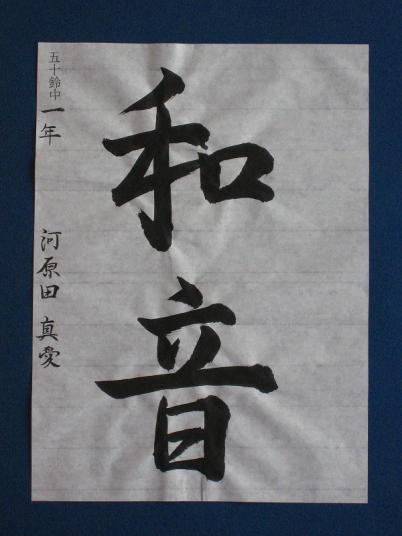 和音
五十鈴中一年
河原田 真愛